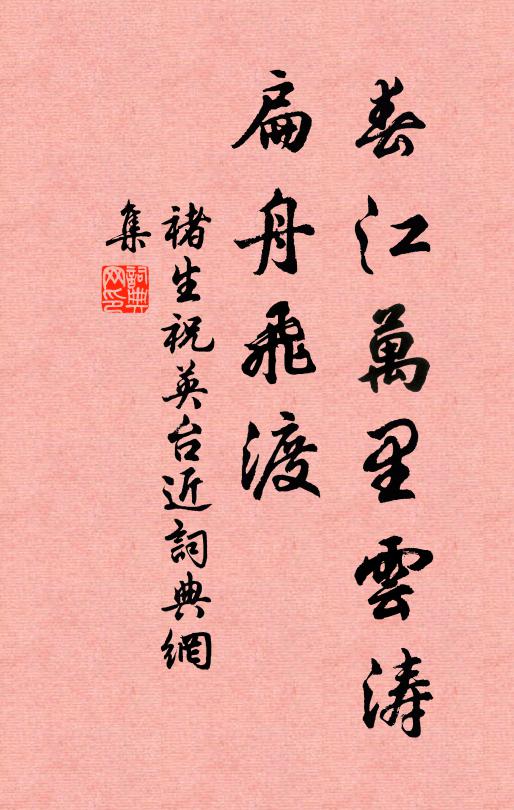 春江萬里雲涛
扁舟飛渡
褚生祝英台近詞典網
集
詞典
网印